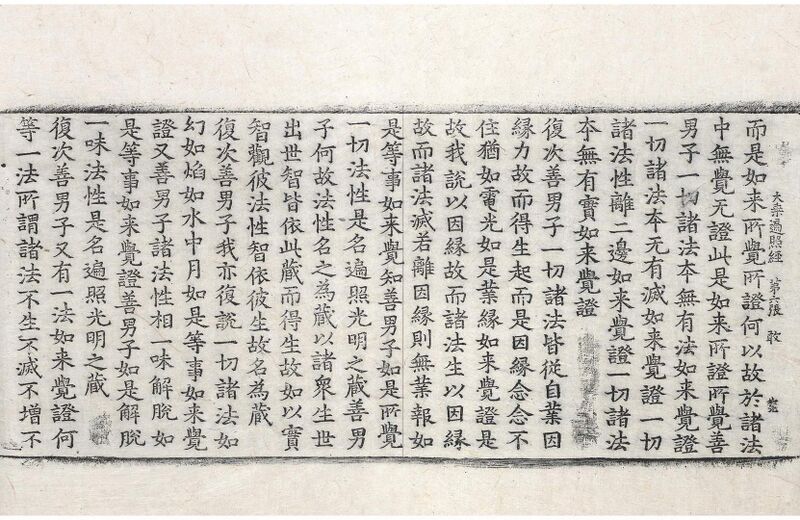 而是如来所覺所證何以故於諸法
大乘遍照經 第六張 敢
中無覺无證此是如来所證所覺善
男子一切諸法夲無有法如来覺證
一切諸法夲无有滅如来覺證一切
諸法性離二邊如来覺證一切諸法
夲無有實如来覺證
復次善男子一切諸法皆従自業因
縁力故而得生起而是因縁念念不
住猶如電光如是業縁如来覺證是
故我說以因縁故而諸法生以因縁
故而諸法滅若離因縁則無業報如
是等事如来覺知善男子如是所覺
一切法性是名遍照光明之藏善男
子何故法性名之為藏以諸衆生世
出世智皆依此藏而得生故如以實
智觀彼法性智依彼生故名為藏
復次善男子我亦復說一切諸法如
幻如焰如水中月如是等事如来覺
證又善男子諸法性相一味解脫如
是等事如来覺證善男子如是解脫
一味法性是名遍照光明之藏
復次善男子又有一法如来覺證何
等一法所謂諸法不生不滅不增不